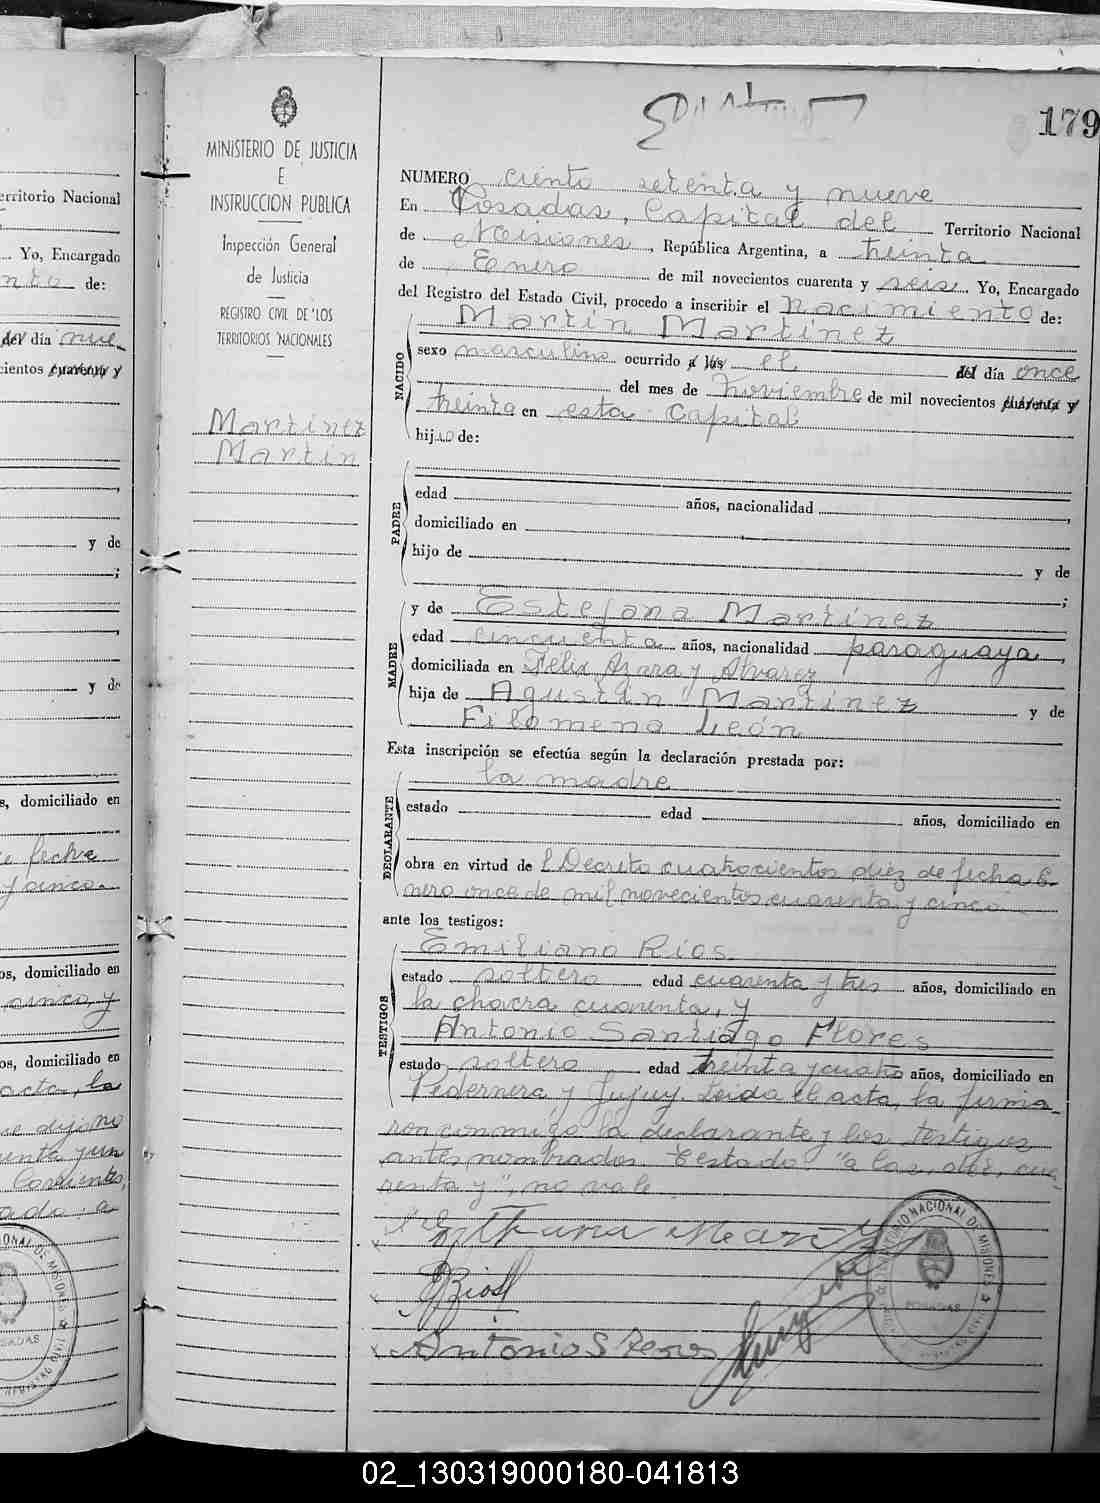 179
MINISTERIO DE JUSTICIA
E
INSTRUCCION PUBLICA
Inspección General
de Justicia
REGISTRO CIVIL DE LOS
TERRITORIOS NACIONALES
Martinez
Martín
NUMERO ciento setenta y nueve
En Posadas, Capital del Territorio Nacional
de Misiones, República Argentina, a treinta
de Enero de mil novecientos cuarenta y seis Yo, Encargado
del Registro del Estado Civil, procedo a inscribir el nacimiento de:
NACIDO
Martín Martínez
sexo masculino ocurrido a las el del día once
del mes de noviembre de mil novecientos cuarenta y
treinta en esta Capital
hijo de:
PADRE
edad años, nacionalidad ,
domiciliado en
hijo de y de
;
MADRE
y de Estefana Martínez
edad cincuenta años, nacionalidad paraguaya,
domiciliada en Felix Azara y Alvarez
hija de Agustín Martínez y de
Filomena León
Esta inscripción se efectúa según la declaración prestada por:
DECLARANTE
la madre
estado edad años, domiciliado en
obra en virtud de l Decreto cuatrocientos diez de fecha E-
nero once de mil novecientos cuarenta y cinco
ante los testigos:
TESTIGOS
Emiliano Ríos
estado soltero edad cuarenta y tres años, domiciliado en
la chacra cuarenta, y
Antonio Santiago Flores
estado soltero edad treinta y cuatro años, domiciliado en
Pedernera y Jujuy. Leida el acta, la firma-
ron conmigo la declarante y los testigos
antes nombrados. Testado "a las, del, cua-
renta y", no vale
ERios
Antonio S Flores
TERRITORIO NACIONAL DE MISIONES
POSADAS
erritorio Nacional
Yo, Encargado
nta de:
del día nue-
cientos cuarenta y
,
y de
;
,
y de
s, domiciliado en
fecha
y cinco
os, domiciliado en
cinco y
os, domiciliado en
acta, la
se dijo no
Corrientes,
02_130319000180-041813